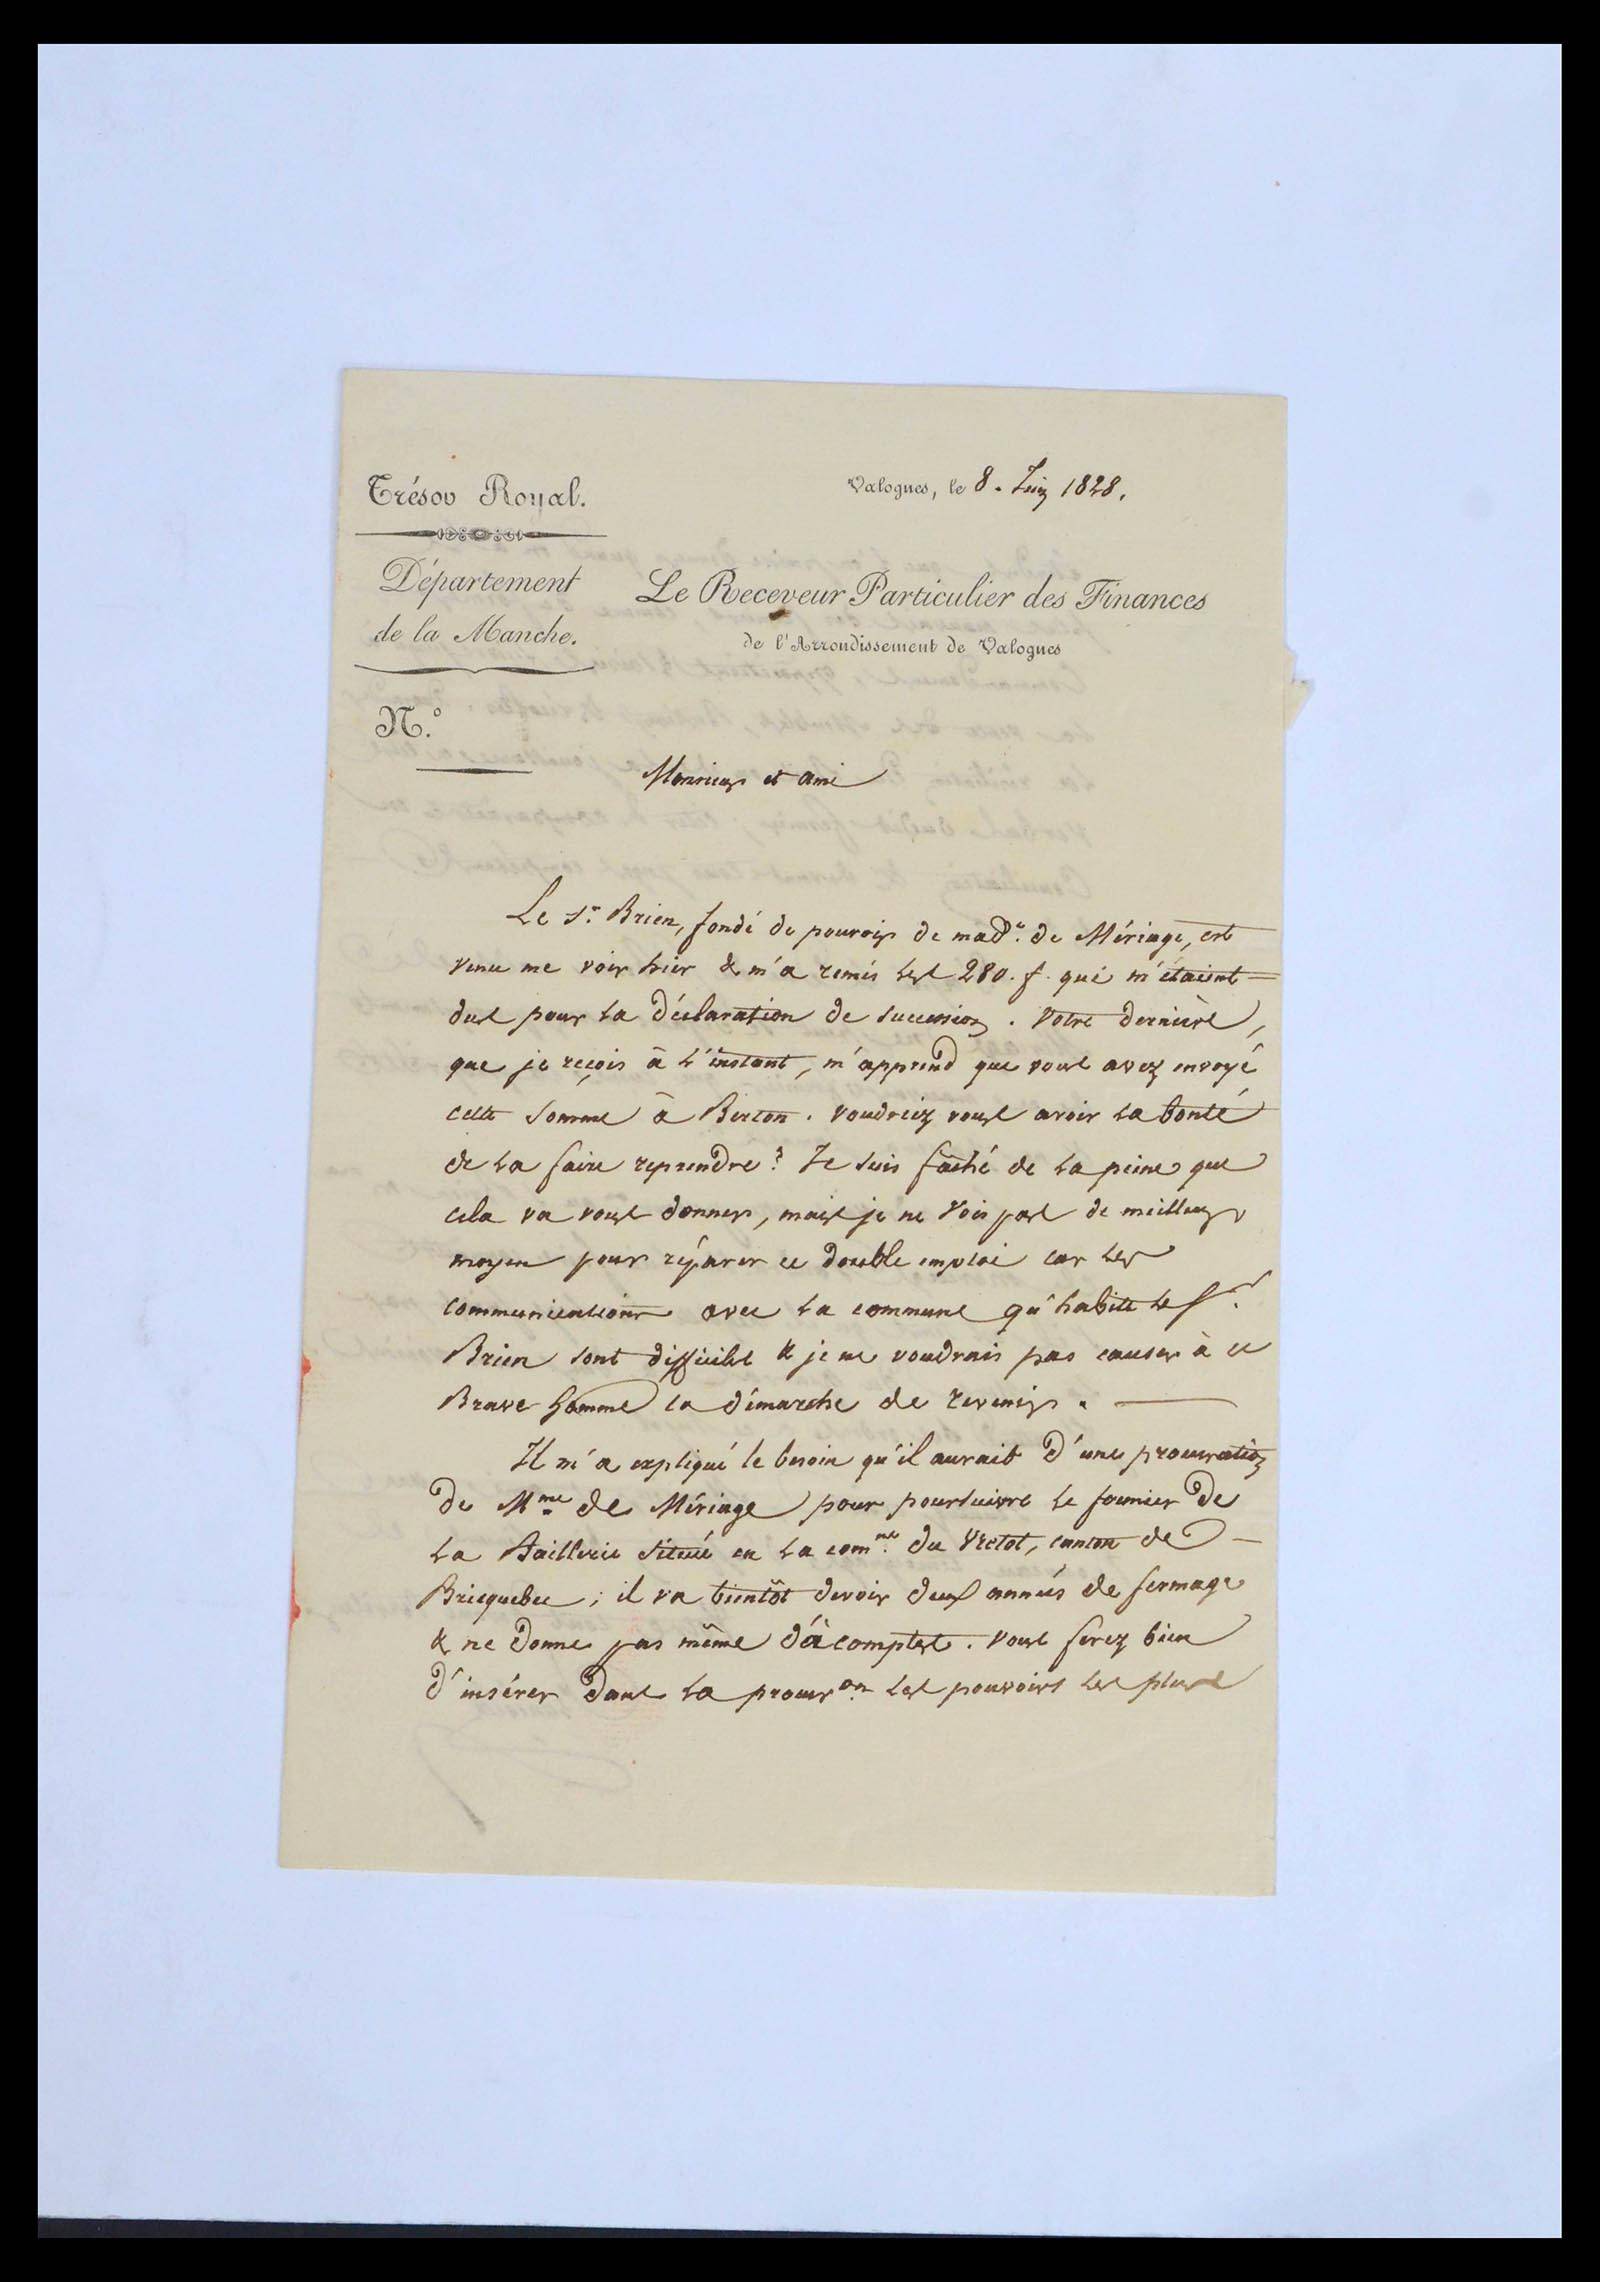 Trésor Royal.
Valognes, le 8. Juin 1828.
Département
de la Manche.
Le Receveur Particulier des Finances
de l'Arrondissement de Valognes
N.º
Monsieur et ami
Le Sr. Brien, fondé de pouvoir de made. de Mériage, est
venu me voir hier & m'a remis les 280. f. qui m'étaient
dus pour la déclaration de succession. Votre dernière,
que je reçois à l'instant, m'apprend que vous avez envoyé
cette somme à Berton. voudriez vous avoir la bonté
de la faire reprendre? Je suis fâché de la peine que
cela va vous donner, mais je ne vois pas de meilleur
moyen pour réparer ce double emploi car les
communications avec la commune qu'habite le Sr.
Brien sont difficiles & je ne voudrais pas causer à ce
Brave homme la démarche de revenir.
Il m'a expliqué le besoin qu'il aurait d'une procuration
de Mme de Mériage pour poursuivre le fermier de
la située en la comne. du Vretot, canton de
Bricquebec; il va bientôt devoir deux années de fermage
& ne donne pas même d'à comptes. vous ferez bien
d'insérer dans la procuron les pouvoirs les plus